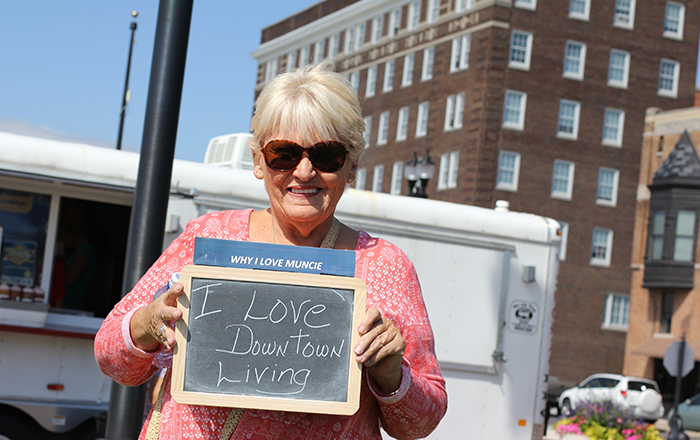 WHY I LOVE MUNCIE
I Love
Downtown
Living